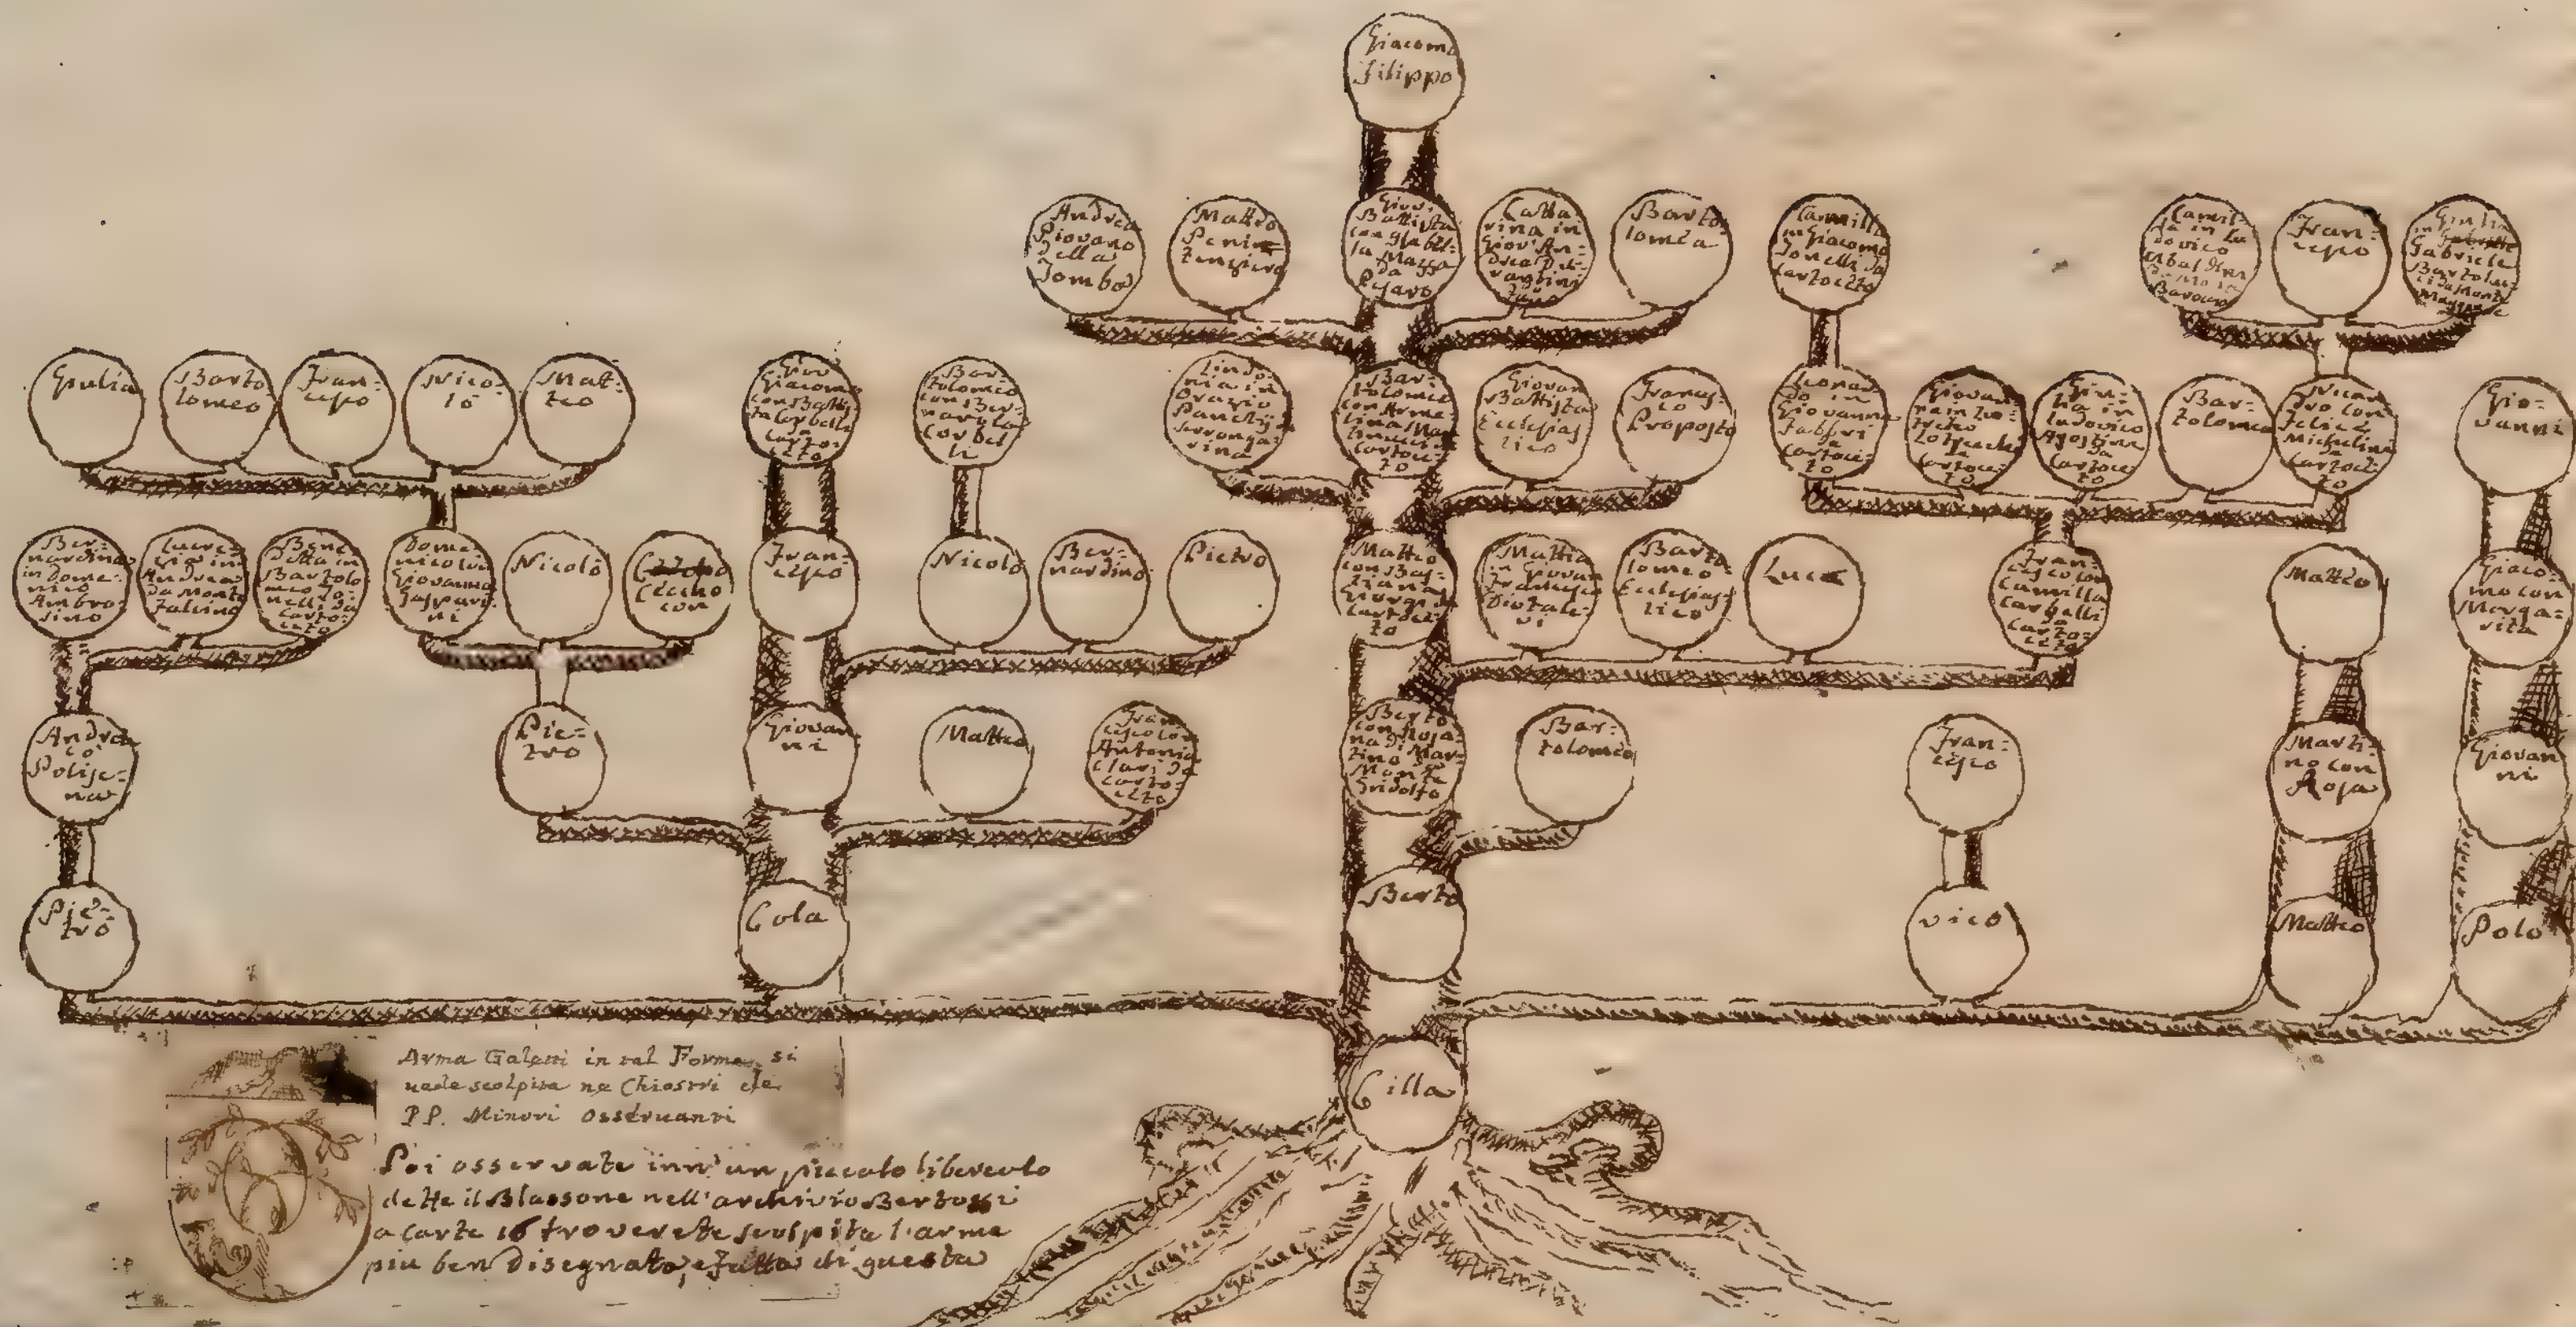 Giacomo
Filippo
Andrea
Piovano
della
Tomba
Matteo
Peni=
Giov:
Battista
con
la Mazza
da
Pesaro
Catta
rina in
Giov: An=
drea
Barto
lomea
Camilla
in Giacomo
Tonelli da
Cartoceto
Camil=
la in Lu
dovico
Baroccio
Fran=
cesco
Giulia
in
Gabriele
Bartolu=
Giulia
Barto
lomeo
Fran=
cesco
Nico=
lò
Mat=
teo
Giov
Giacomo
con Battis
ta Corbelli
da
Cartoc=
eto
Bar=
tolomeo
con Ber=
Corbel
li
in
Orazio
Serronga
rina
Bar=
tolomeo
con
Cartoce=
to
Giovan
Battista
Ecclesias
tico
Franc=
co
Proposto
Leonar
da in
Giovanni
Fabbri
da
Cartoce=
to
Giovan
na in
da
Cartoce=
to
Giu=
lia in
Ludovico
Agostini
da
Cartoce
to
Bar=
tolomeo
Nican
dro con
Felice
Michelini
da
Cartoce
to
Gio=
vanni
Ber=
nardina
in Dome=
nico
Ambro=
sino
Lucre=
zia in
Andrea
da Monte
Falcino
Bene
detta in
Bartolo
meo To=
nelli da
Carto=
ceto
Dome=
nico con
Giovanna
Gaspari
ni
Nicolò
Cecho
con
Fran=
cesco
Nicolò
Ber=
nardino
Pietro
Matteo
con Bas=
tiana
Giorgi da
Cartoce=
to
Mattia
in Giovan
Francesco
Diotale=
vi
Barto
lomeo
Ecclesias
tico
Luca
Fran=
cesco con
Camilla
da
Carto=
ceto
Matteo
Giaco=
mo con
Marga=
rita
Andrea
cō
Polise=
na
Pie=
tro
Giovan
ni
Matteo
Fran
cesco con
Antonia
Clari da
Carto=
ceto
Berto
con Rosa
na di Mar=
tino Mar=
Monte
Gridolfo
Bar=
tolomeo
Fran=
cesco
Marti=
no con
Rosa
Giovan
ni
Pie=
tro
Cola
Berto
Vico
Matteo
Polo
Cilla
Arma Galassi in tal Forma si
vede scolpita ne Chiostri de
P.P. Minori Osseruanti
Poi osservate inn'un piccolo libercolo
dette il Blassone nell'archivio Bertozzi
a Carte 16 troverete scolpita l'arma
piu ben disegnata, e fatta di questa